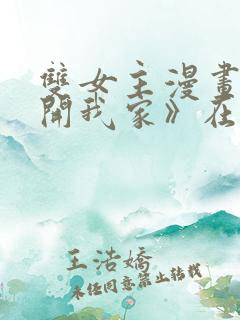 雙女主漫畫
開我家》在
王浩嬌
未经同意禁止转载